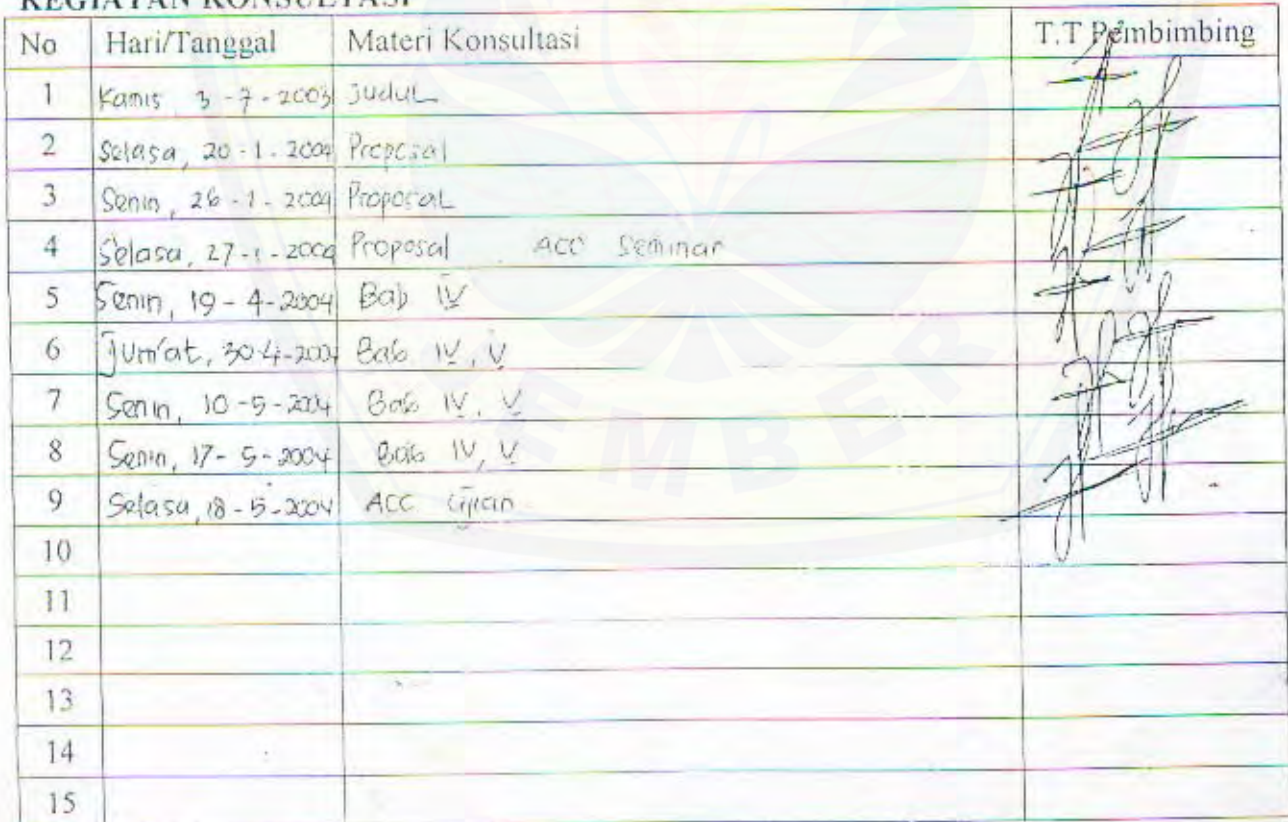 KEGIATAN KONSULTASI
No Hari/Tanggal Materi Konsultasi T.T Pembimbing
1 Kamis, 3-7-2003 Judul
2 Selasa, 20-1-2004 Proposal
3 Senin, 26-1-2004 Proposal
4 Selasa, 27-1-2004 Proposal ACC Seminar
5 Senin, 19-4-2004 Bab IV
6 Jum'at, 30-4-2004 Bab IV, V
7 Senin, 10-5-2004 Bab IV, V
8 Senin, 17-5-2004 Bab IV, V
9 Selasa, 18-5-2004 ACC Ujian
10
11
12
13
14
15
EMBER